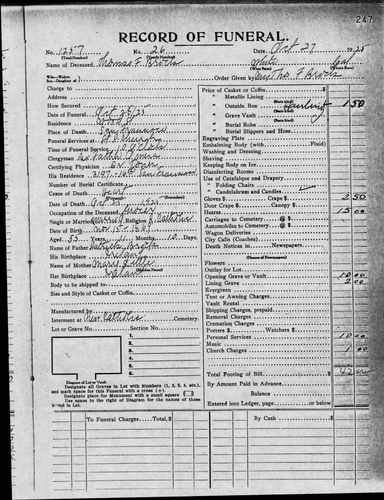 247
RECORD OF FUNERAL.
No. 1257 No. 26 Date, Oct 27 1925
(Total Number) (Yearly Number)
Name of Deceased, Thomas F. White Cal
Wife—Widow
Son—Daughter of Order Given by Mrs Thos. F.
Charge to
Address
How Secured
Date of Funeral Oct 28/25
Residence
Place of Death, San Francisco
Funeral Services at
Time of Funeral Service,
Clergyman
Certifying Physician Dr.
His Residence San Francisco
Number of Burial Certificate,
Cause of Death,
Date of Death Oct 25, 1925
Occupation of the Deceased,
Single or Married, Religion,
Date of Birth, Nov 15
Aged, Years, 11 Months, 10 Days
Name of Father,
His Birthplace, Ireland
Name of Mother, Mary
Her Birthplace, Ireland
Body to be shipped to
Size and Style of Casket or Coffin,
Manufactured by
Interment at Cemetery
Lot or Grave No. Section No.
1.
2.
3.
4.
5.
6.
Diagram of Lot or Vault
Designate all Graves in Lot with Numbers (1, 2, 3, 4, etc.),
and mark space for this Funeral with a cross (+).
Designate place for Monument with a small square
Use space to the right of Diagram of those buried in Lot.
Price of Casket or Coffin $
" Metallic Lining
" Outside Box 1 50
" Grave Vault
" Burial Robe
" Burial Slippers and Hose
Engraving Plate
Embalming Body (with Fluid)
Washing and Dressing
Shaving
Keeping Body on Ice
Disinfecting Rooms
Use of Catafalque and Drapery
" Folding Chairs
" Candelabrum and Candles
Gloves $ Crape $ 2 50
Door Crape, Canopy
Hearse 15 00
Carriages to Cemetery @ $
Automobiles to Cemetery @ $
Wagon Deliveries
City Calls (Coaches)
Death Notices in Newspapers
Flowers
Outlay for Lot
Opening Grave or Vault 10 00
Lining Grave 2 00
Evergreen
Tent or Awning Charges
Vault Rental
Shipping Charges, prepaid
Removal Charges
Cremation Charges
Porters $ Watchers $
Personal Services 10 00
Music
Church Charges 1 00
Total Footing of Bill $ 42 00
By Amount Paid in Advance
Balance
Entered into Ledger, page or below
To Funeral Charges Total, $ By Cash $